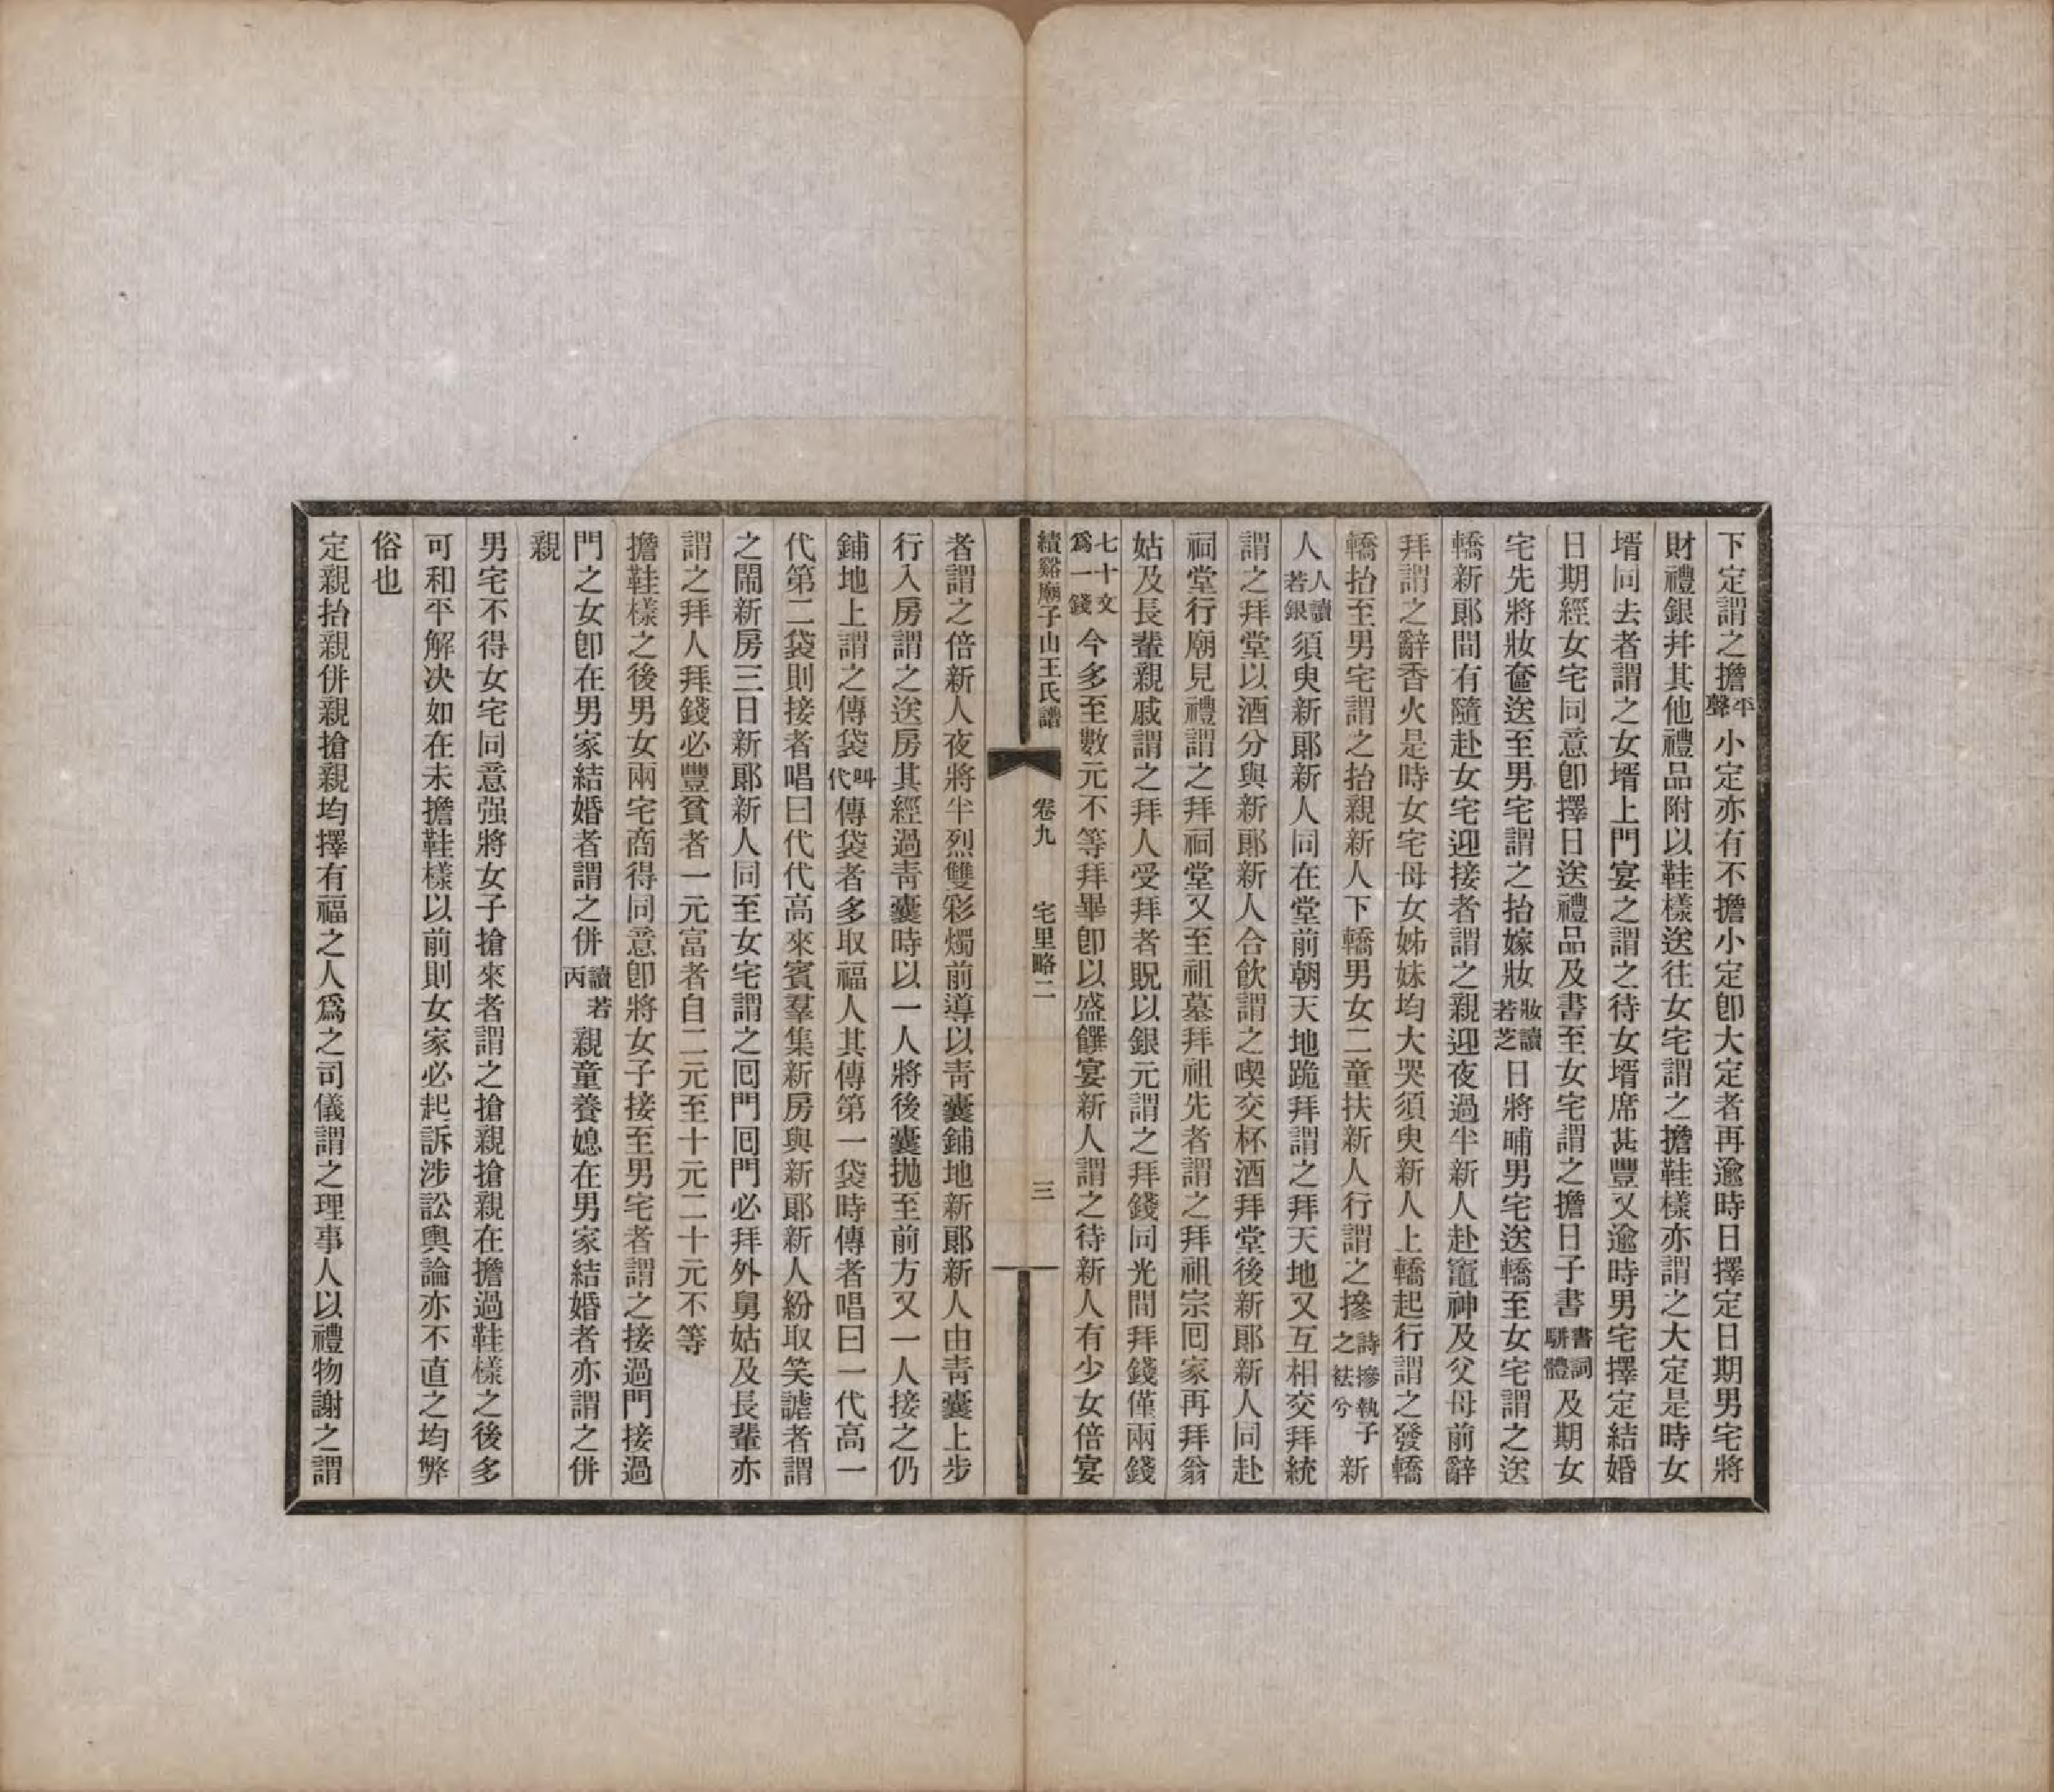 下定謂之擔平聲小定亦有不擔小定卽大定者再逾時日擇定日期男宅將
財禮銀幷其他禮品附以鞋樣送往女宅謂之擔鞋樣亦謂之大定是時女
壻同去者謂之女壻上門宴之謂之待女壻席甚豐又逾時男宅擇定結婚
日期經女宅同意卽擇日送禮品及書至女宅謂之擔日子書書詞駢體及期女
宅先將妝奩送至男宅謂之抬嫁妝妝讀若芝日將晡男宅送轎至女宅謂之送
轎新郞間有隨赴女宅迎接者謂之親迎夜過半新人赴竈神及父母前辭
拜謂之辭香火是時女宅母女姊妹均大哭須臾新人上轎起行謂之發轎
轎抬至男宅謂之抬親新人下轎男女二童扶新人行謂之摻詩摻執子之袪兮新
人人讀若銀須臾新郞新人同在堂前朝天地跪拜謂之拜天地又互相交拜統
謂之拜堂以酒分與新郞新人合飮謂之喫交杯酒拜堂後新郞新人同赴
祠堂行廟見禮謂之拜祠堂又至祖墓拜祖先者謂之拜祖宗囘家再拜翁
姑及長輩親戚謂之拜人受拜者貺以銀元謂之拜錢同光間拜錢僅兩錢
七十文爲一錢今多至數元不等拜畢卽以盛饌宴新人謂之待新人有少女倍宴
績谿廟子山王氏譜 卷九 宅里略二 三
者謂之倍新人夜將半烈雙彩燭前導以靑囊鋪地新郞新人由靑囊上步
行入房謂之送房其經過靑囊時以一人將後囊抛至前方又一人接之仍
鋪地上謂之傳袋叫代傳袋者多取福人其傳第一袋時傳者唱曰一代高一
代第二袋則接者唱曰代代高來賓羣集新房與新郞新人紛取笑謔者謂
之鬧新房三日新郞新人同至女宅謂之囘門囘門必拜外舅姑及長輩亦
謂之拜人拜錢必豐貧者一元富者自二元至十元二十元不等
擔鞋樣之後男女兩宅商得同意卽將女子接至男宅者謂之接過門接過
門之女卽在男家結婚者謂之併讀若丙親童養媳在男家結婚者亦謂之併
親
男宅不得女宅同意强將女子搶來者謂之搶親搶親在擔過鞋樣之後多
可和平解决如在未擔鞋樣以前則女家必起訴涉訟輿論亦不直之均弊
俗也
定親抬親併親搶親均擇有福之人爲之司儀謂之理事人以禮物謝之謂